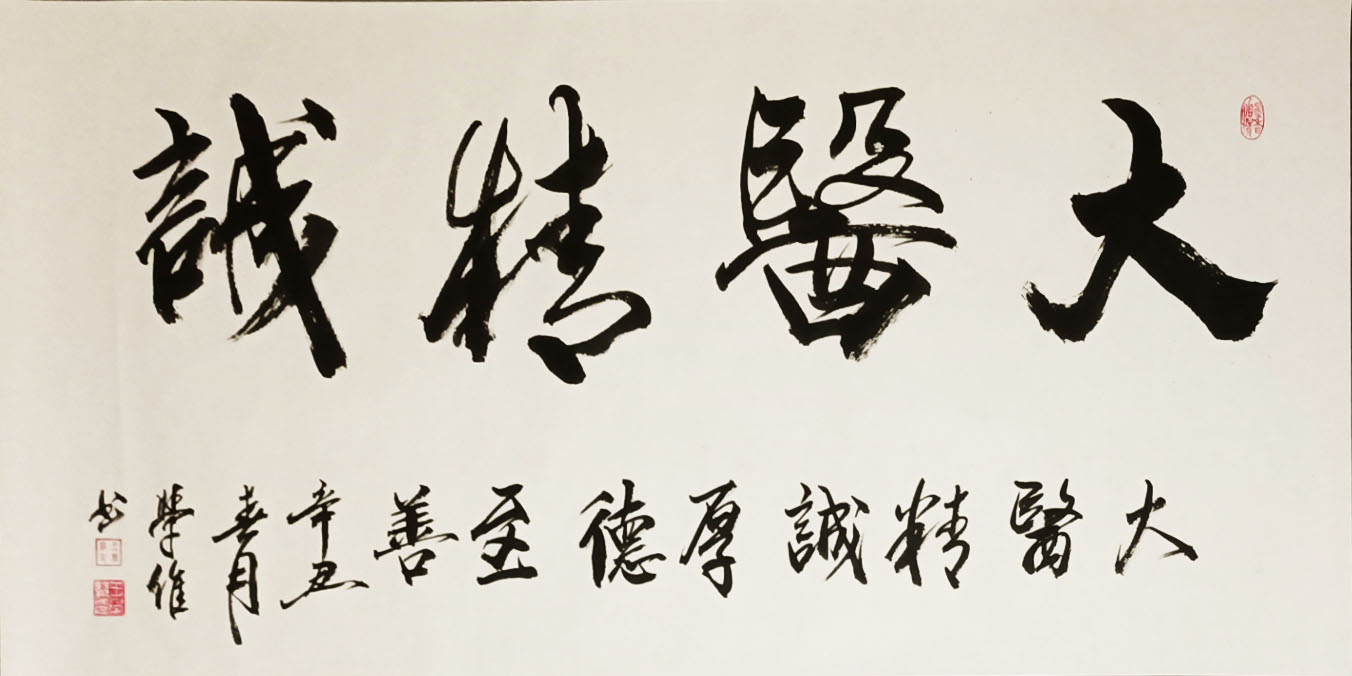 大醫精誠
大醫精誠厚德至善
辛丑
春月
學維
書